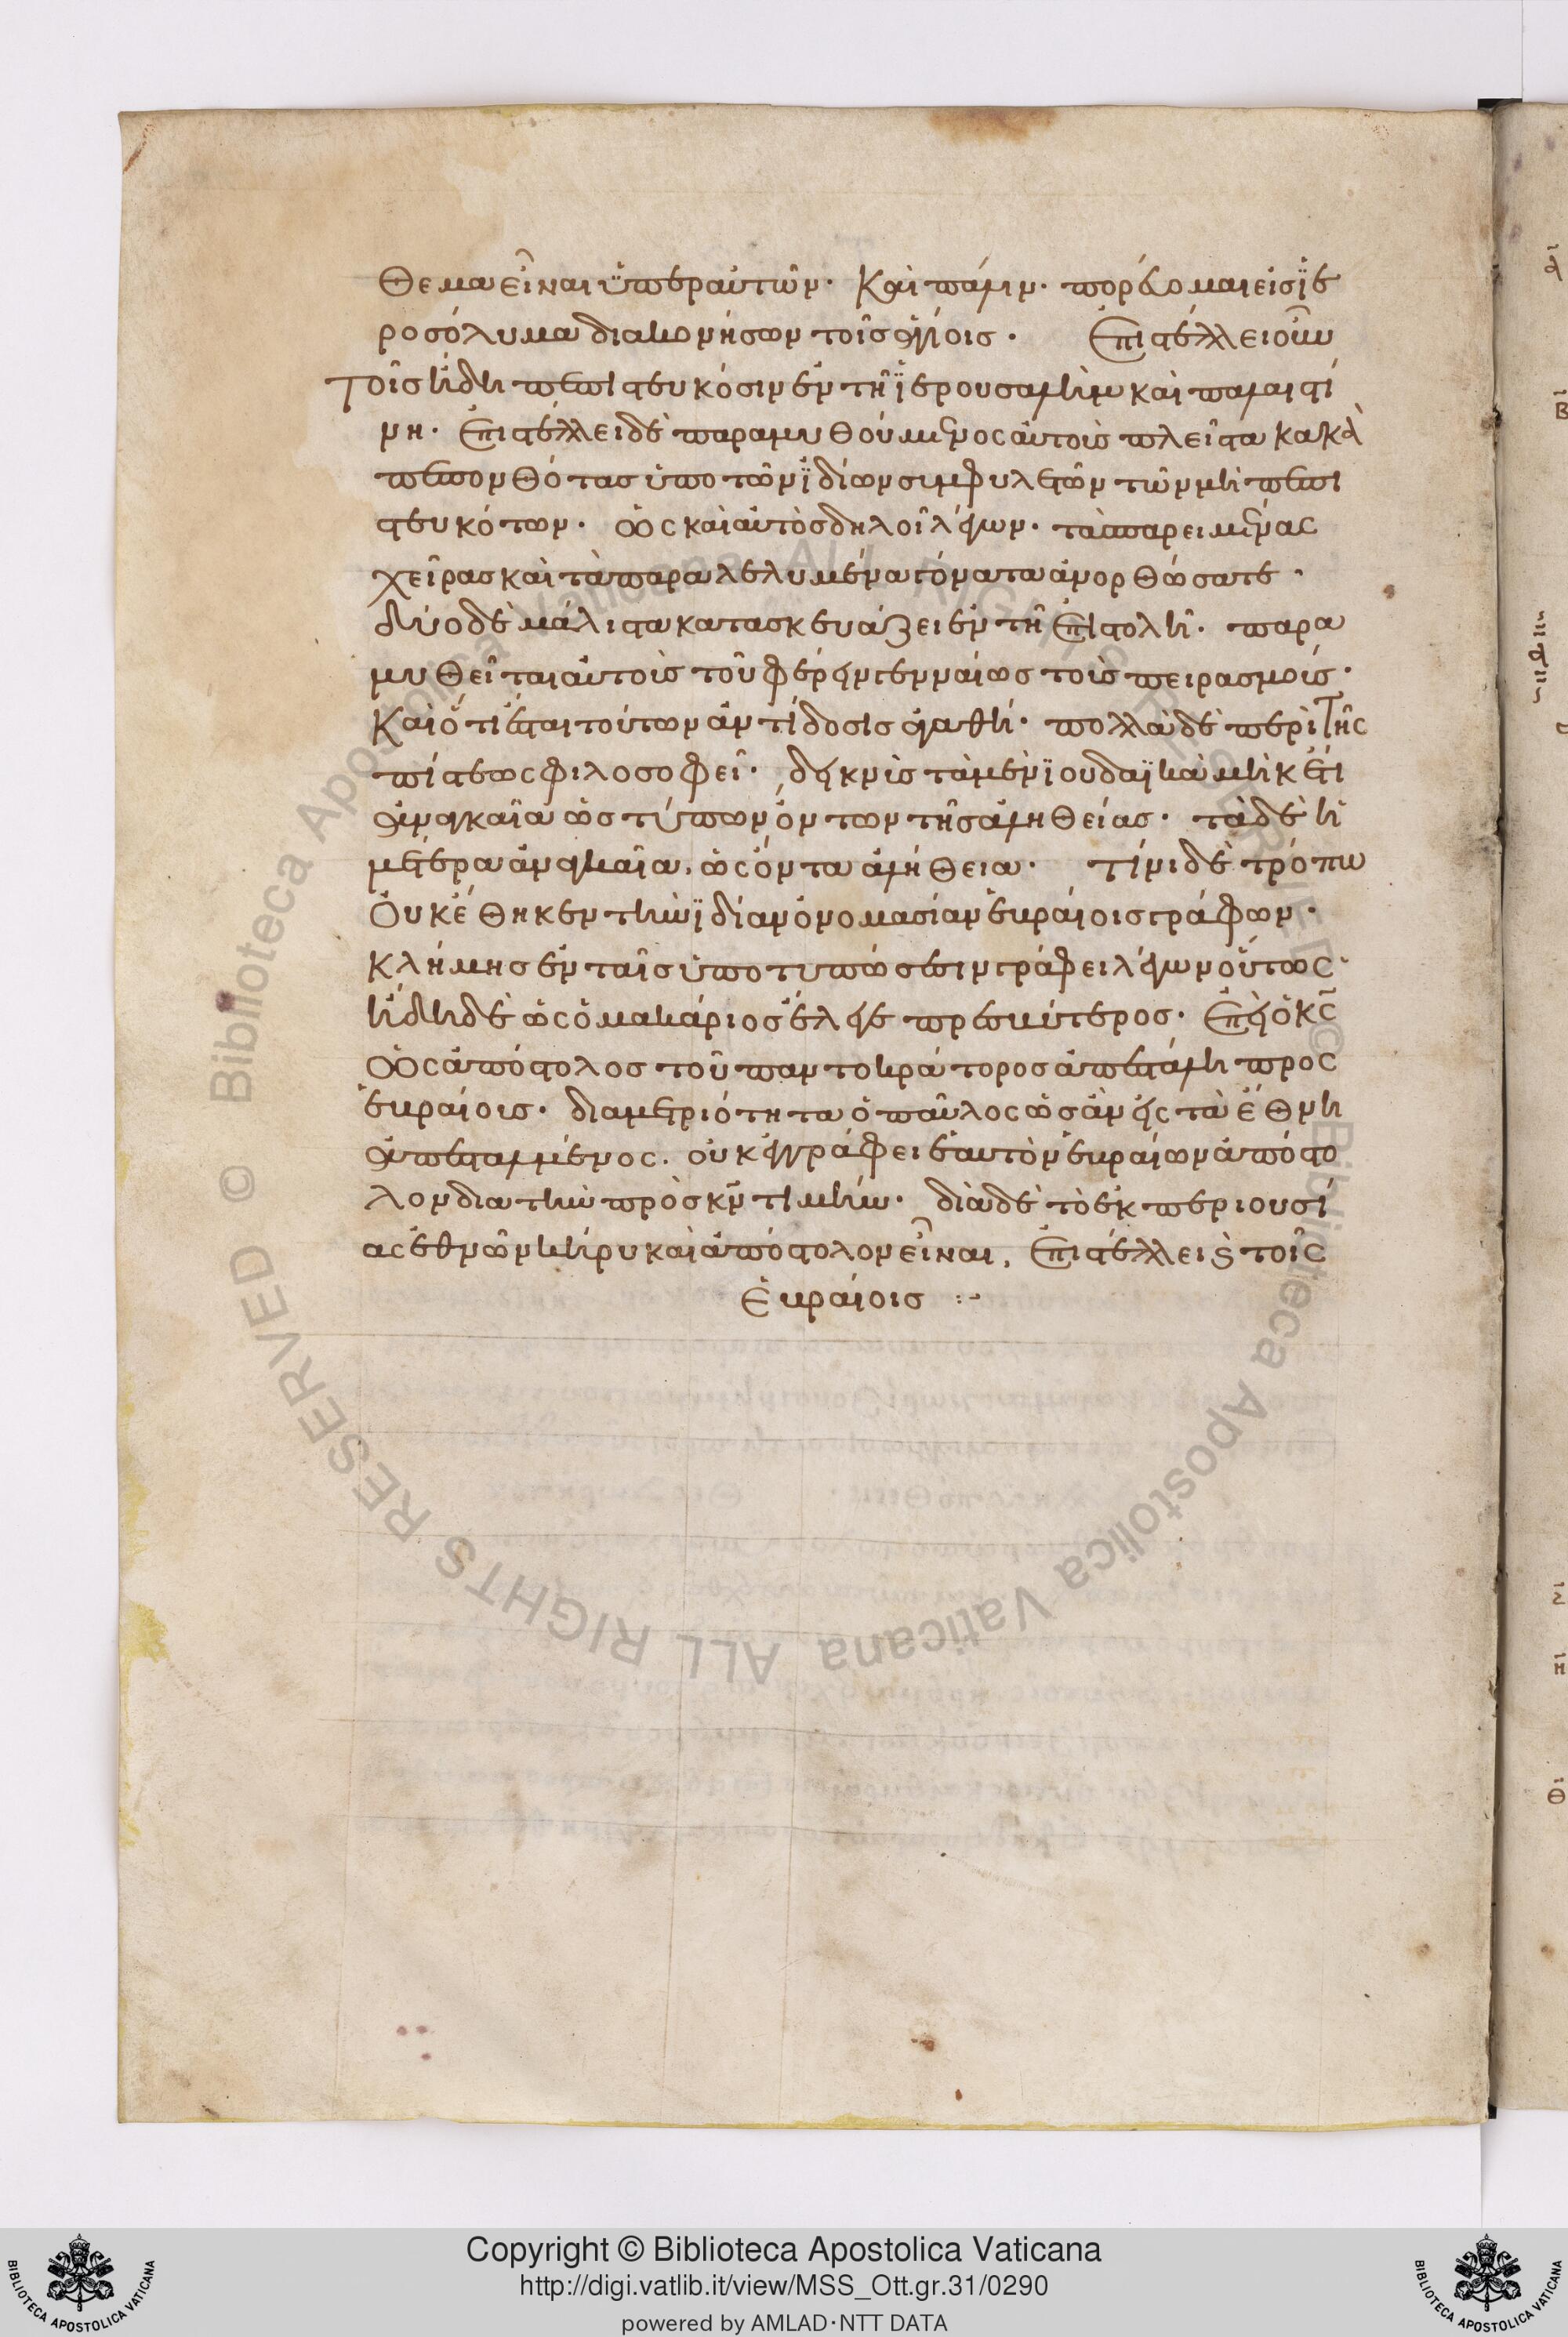 Θεμα εἶναι ὑπερ αὐτῶν· Καὶ πάλιν· πορεύομαι εἰσ ϊε
ροσόλυμα διακονήσων τοῖσ ἁγίοις· Ἐπιστέλλει οὖν
Τοῖσ ἤδη πεπιστευκόσιν ἐν τῇ ϊερουσαλὴμ καὶ παλαιστί
νη· Ἐπιστέλλει δὲ παραμυθούμενος αὐτοὶς πλεῖστα κακὰ
πεπονθότασ ὑπο τῶν ϊδίων συμφυλετῶν τῶν μὴ πεπι
στευκότων· ὡς καὶ αὐτὸσ δηλοῖ λέγων· τὰσ παρειμένας
χεῖρασ καὶ τὰ παραλελυμένα γόνατα ἀνορθώσατε·
δύο δὲ μάλιστα κατασκευάζει ἐν τῇ ἐπιστολῆ· παρα
μυθεῖται αὐτοὶς τοῦ φέρειν γενναίως τοὶς πειρασμοίς·
Καὶ ὅτι ἔσται τούτων ἀντίδοσις ἀγαθή· πολλὰ δὲ περὶ τῆς
πίστεως φιλοσοφεῖ· δεικνὶς τὰ μὲν ϊουδαϊκὰ μὴκέτι
ἀναγκαῖα ὡσ τύπων ὄντων τῆσ ἀληθείας· τὰ δὲ ἡ
μέτερα ἀναγκαῖα, ὡς ὄντα ἀλήθεια· τίνι δὲ τρόπω
Οὐκ ἔθηκεν τὴν ϊδίαν ὀνομασίαν ἑβραίοις γράφων·
Κλήμησ ἐν ταῖσ ὑποτυπώσεσιν γράφει λέγων οὕτως·
ἤδη δὲ ὡς ὁ μακάριος ἔλεγε πρεσβύτερος· Ἐπεὶ ὁ κ̅ς̅
Ὡς ἀπόστολος τοῦ παντοκράτορος ἀπεστάλη προς
ἑβραίοις· διαμετριότητα ὁ παῦλος ὡσ ἀν εἰς τὰ ἔθνη
ἀπεσταλμένος. οὐκ ἐγγράφει ἑαυτὸν ἑβραίων ἀπόστο
λον δια τὴν πρὸσ κ̅ν̅ τιμήν· διὰ δὲ τὸ ἐκ περιουσί
ας ἐθνῶν κήρυκα ἀπόστολον εἶναι, Ἐπιστέλλει ϗ τοῖς
Ἑβραίοις :~